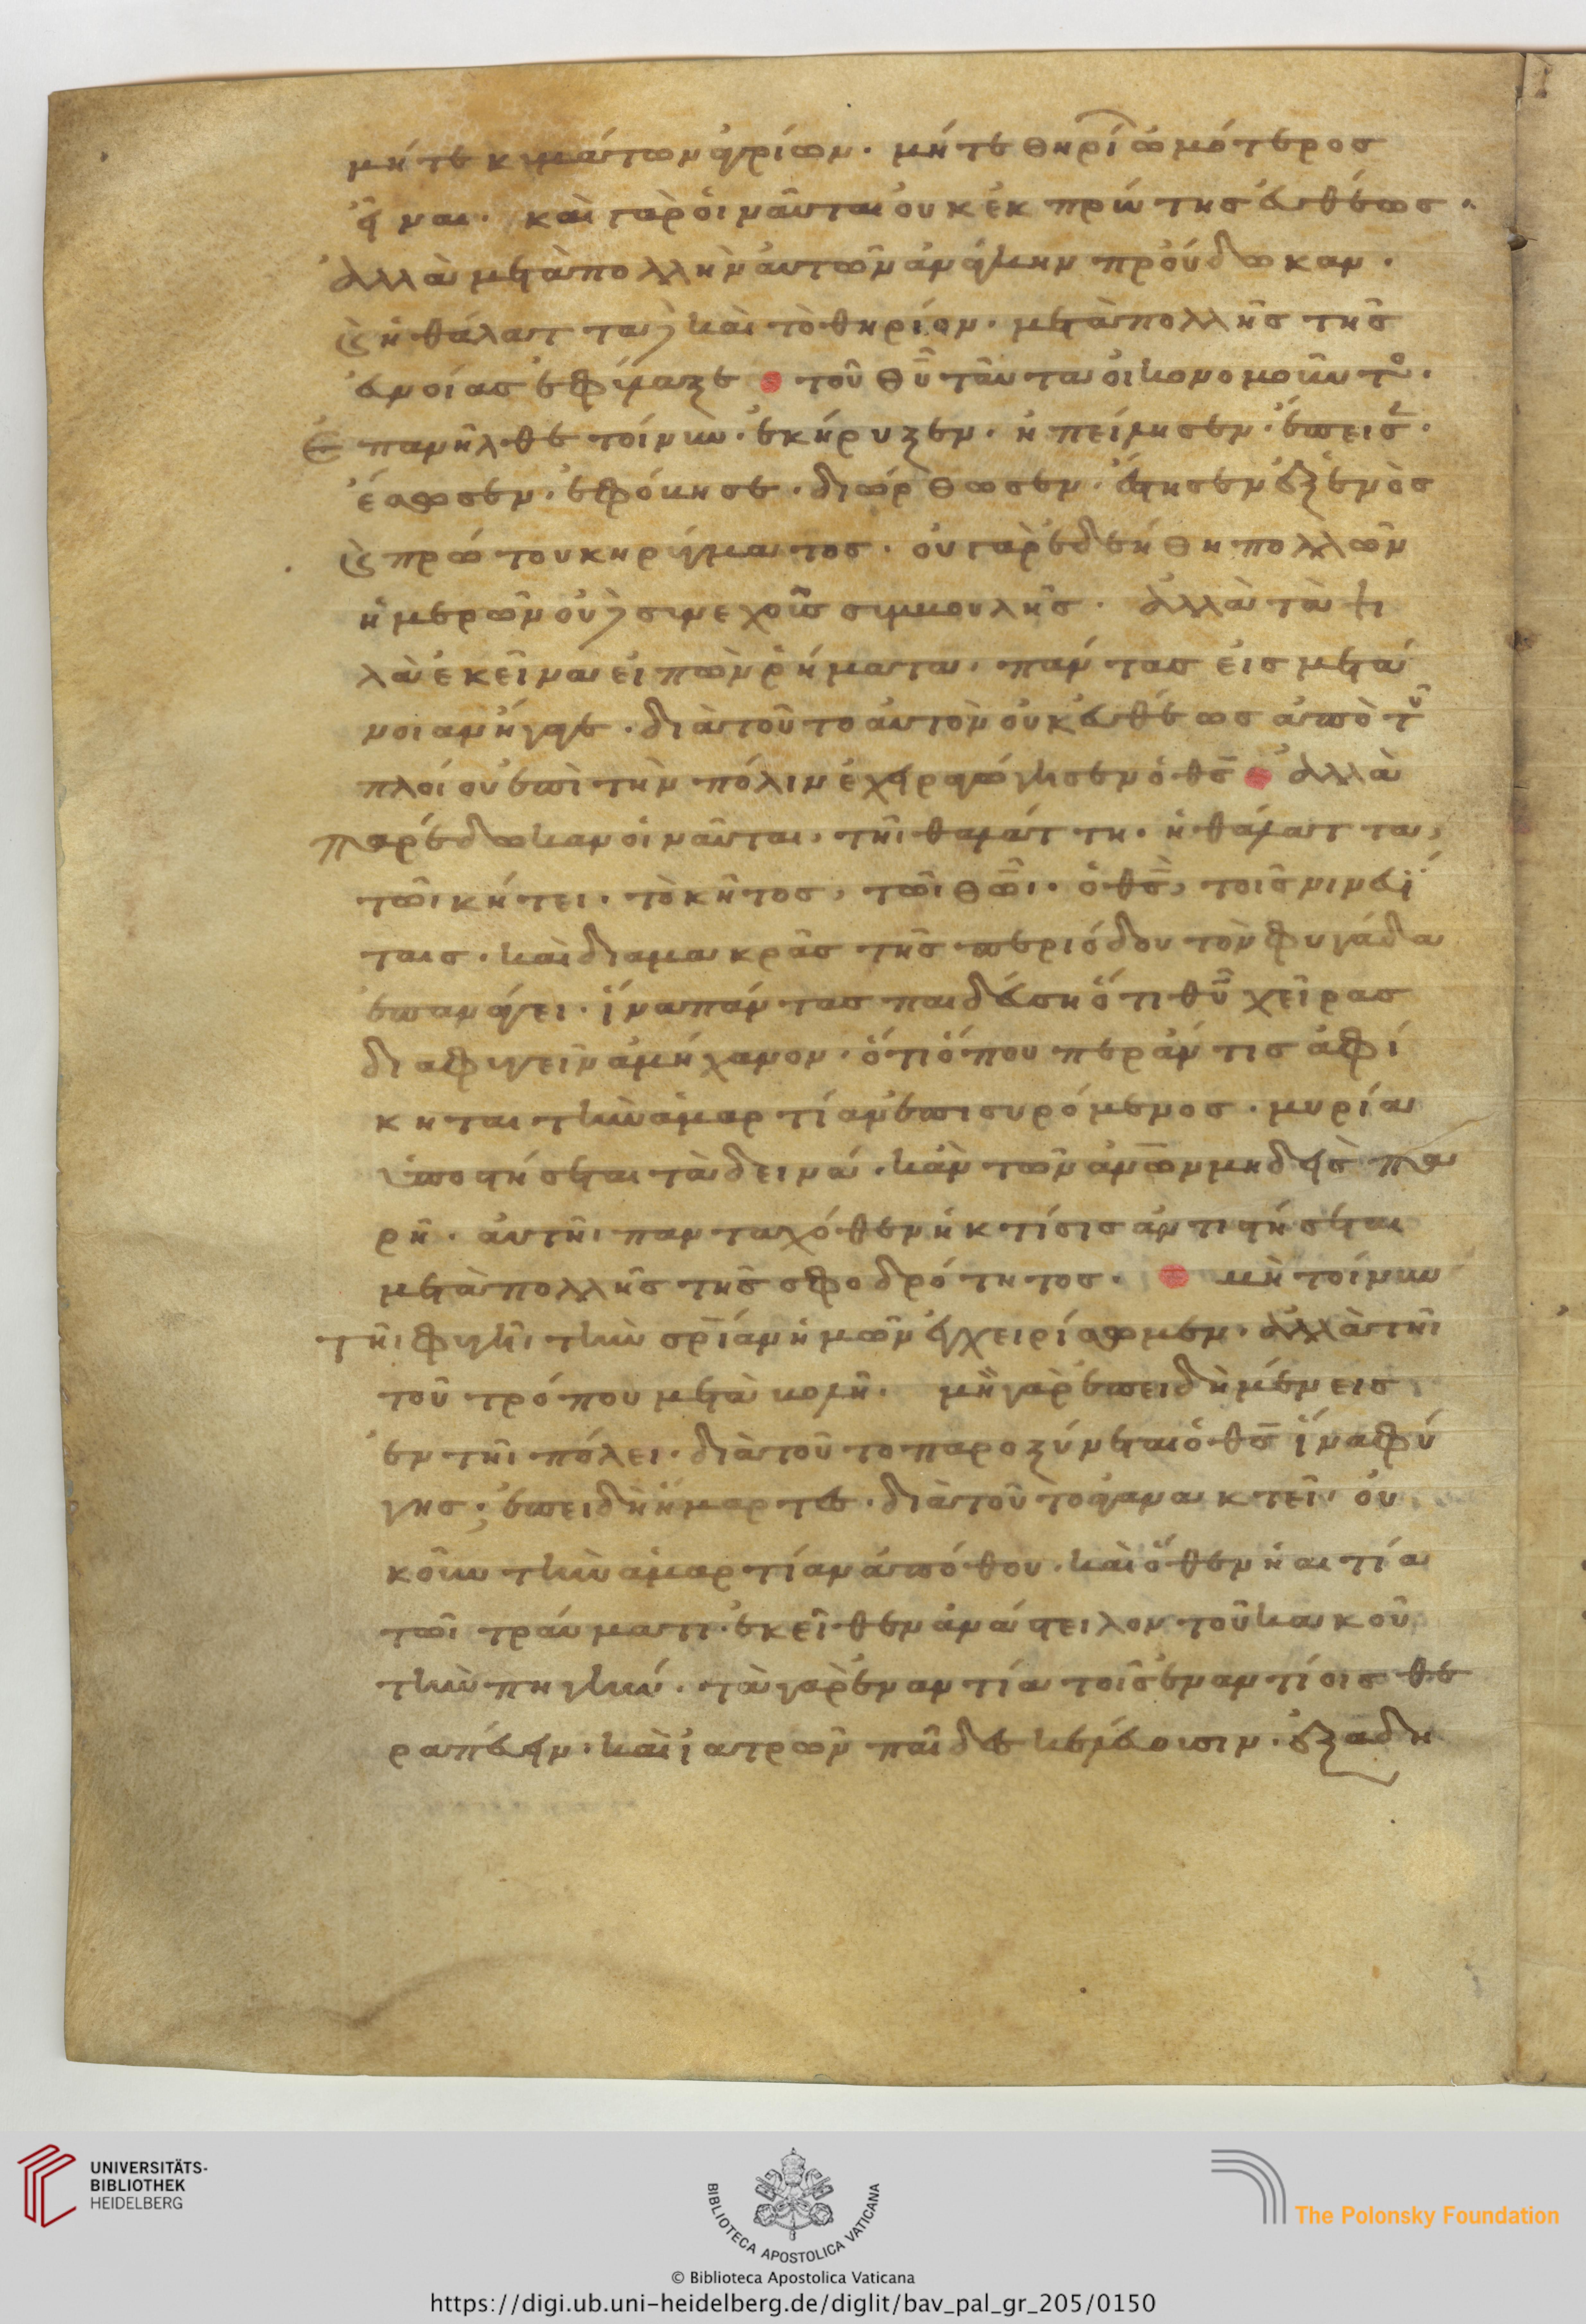 μήτε κυμάτων ἀγρίων. μήτε θηρίων ὠμότερος
εἶναι. καὶ γὰρ οἱ ναῦται οὐκ ἐκ πρώτης εὐθέως.
ἀλλὰ μετὰ πολλὴν αὐτῶν ἀνάγκην προὔδωκαν.
καὶ ἡ θάλαττα, καὶ τὸ θηρίον. μετὰ πολλῆς τῆς
εὐνοίας ἐφύλαξε τοῦ θ̅υ̅ ταῦτα οἰκονομοῦντο.
ἐπανῆλθε τοίνυν. ἐκήρυξεν. ἠπείλησεν. ἔπεισ.
ἔσωσεν. ἐφόβησε. διώρθωσεν. ἔστησεν ἐξ ἑνὸς
καὶ πρώτου κηρύγματος. οὐ γὰρ ἐδεήθη πολλῶν
ἡμερῶν οὐδὲ συνεχοῦς συμβουλῆς. ἀλλὰ τὰ ψι
λὰ ἐκεῖνα εἰπὼν ῥήματα, πάντας εἰς μετά
νοιαν ἦγε. διὰ τοῦτο αὐτὸν οὐκ εὐθέως ἀπὸ τοῦ
πλοίου ἐπὶ τὴν πόλιν ἐχειραγώγησεν ὁ θ̅ς̅ ἀλλὰ
παρέδωκαν οἱ ναῦται, τῆι θαλάττη. ἡ θάλαττα,
τῶι κήτει. τὸ κῆτος, τῶι θ̅ω̅ι. ὁ θ̅ς̅, τοῖς νινευί
ταις. καὶ διὰ μακρᾶς τῆς περιόδου τὸν φυγάδα
ἐπανάγει. ἵνα πάντας παιδεύση ὅτι θ̅υ̅ χεῖρας
διαφυγεῖν ἀμήχανον. ὅτι ὅπου περ ἄν τις ἀφί
κηται τὴν ἁμαρτίαν ἐπισυρόμενος. μυρία
ὑποστήσεται τὰ δεινά. κἂν τῶν α̅ν̅ω̅ν μηδεὶς πα
ρῆ. αὐτὴ πανταχόθεν ἡ κτίσις ἀντιστήσεται
μετὰ πολλῆς τῆς σφοδρότητος. μὴ τοίνυν
τῆι φυγῆι τὴν σ̅ρ̅ίαν ἡμῶν ἐγχειρίσωμεν. ἀλλὰ τῆι
τοῦ τρόπου μεταβολῆ. μὴ γὰρ ἐπειδὴ μένεις
ἐν τῆι πόλει. διὰ τοῦτο παροξύνεται ὁ θ̅ς̅ ἵνα φύ
γης; ἐπειδὴ ἥμαρτες. διὰ τοῦτο ἀγανακτεῖ. οὐ
κοῦν τὴν ἁμαρτίαν ἀπόθου. καὶ ὅθεν ἡ αἰτία
τῶι τραύματι. ἐκεῖθεν ἀνάστειλον τοῦ κακοῦ
τὴν πηγήν. τὰ γὰρ ἐναντία τοῖς ἐναντίοις θε
ραπεύειν. καὶ ἰατρῶν παῖδες κελεύουσιν. ἐξαδη
UNIVERSITÄTS-
BIBLIOTHEK
HEIDELBERG
BIBLIOTECA APOSTOLICA VATICANA
The Polonsky Foundation
© Biblioteca Apostolica Vaticana
https://digi.ub.uni-heidelberg.de/diglit/bav_pal_gr_205/0150